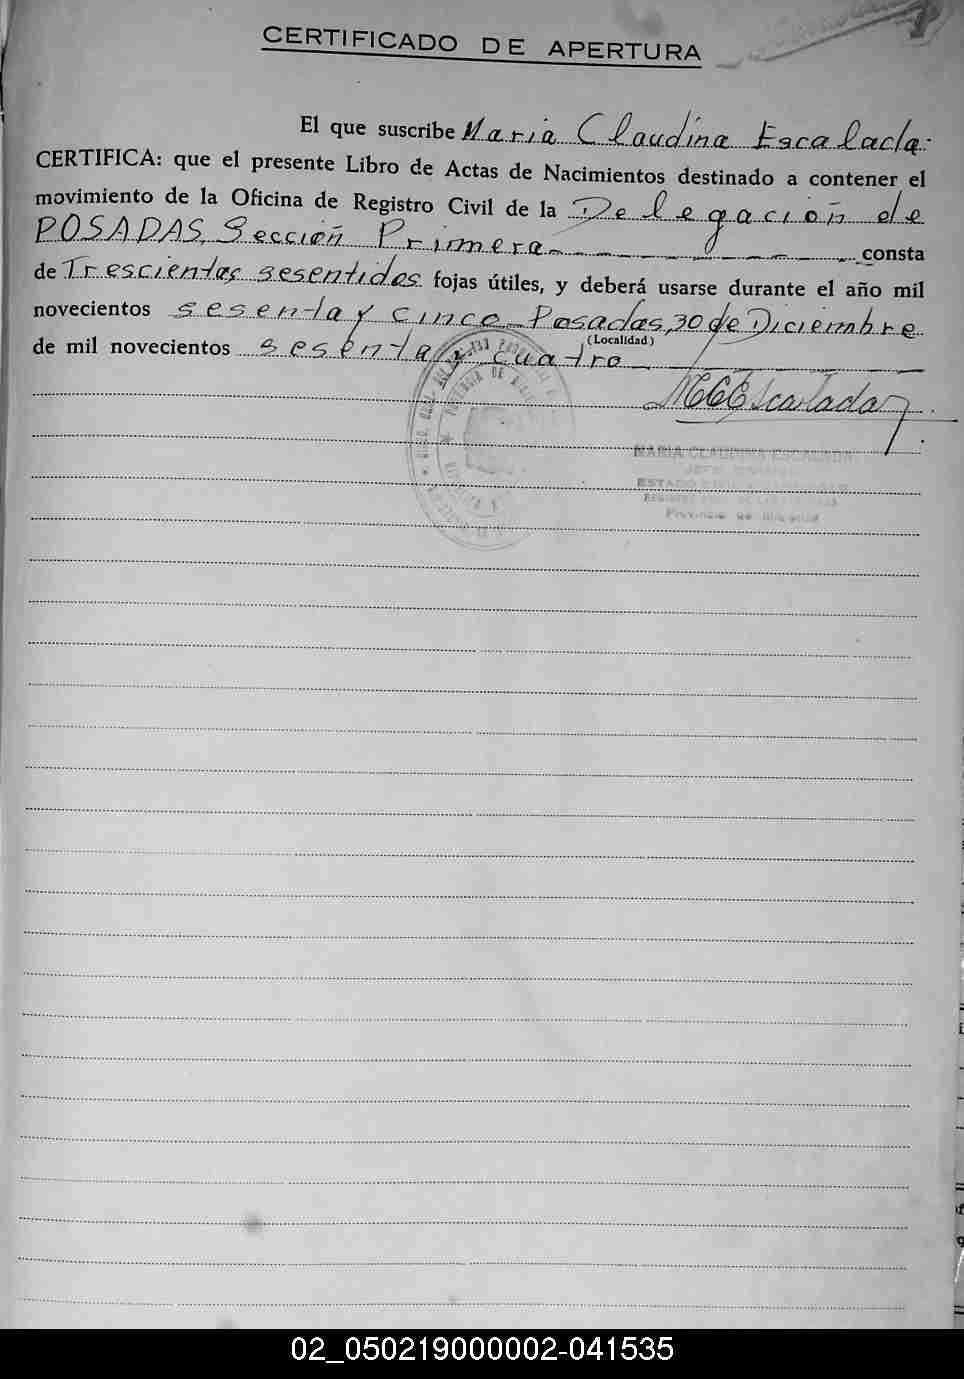 CERTIFICADO DE APERTURA
El que suscribe Maria Claudina Escalada.
CERTIFICA: que el presente Libro de Actas de Nacimientos destinado a contener el
movimiento de la Oficina de Registro Civil de la Delegación de
POSADAS, Sección Primera consta
de Trescientas sesentidos fojas útiles, y deberá usarse durante el año mil
novecientos sesenta y cinco Posadas, 30 de Diciembre
(Localidad)
de mil novecientos sesenta y cuatro
MCEscalada
MARIA CLAUDINA ESCALADA
ESTADO CIVIL
Provincia de Misiones
PROVINCIA DE
02_050219000002-041535